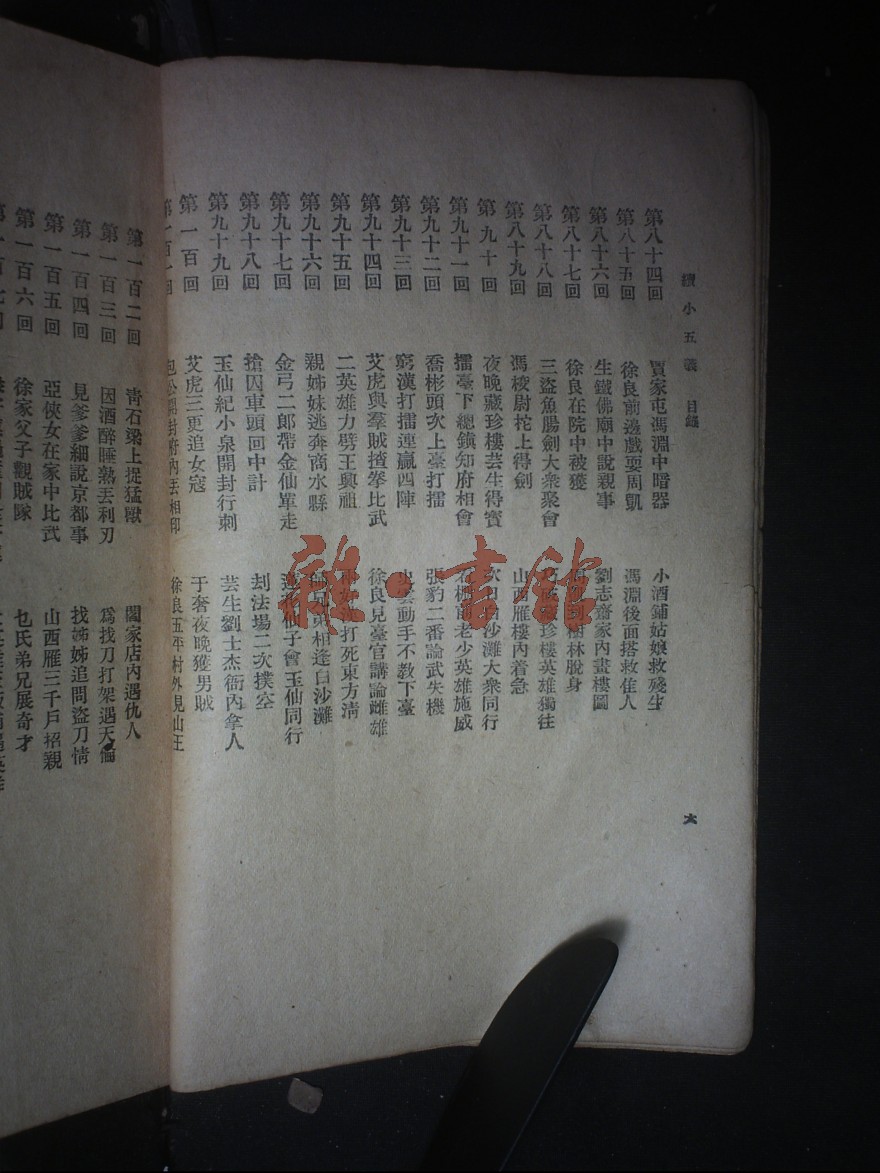 續小五義 目錄 六
第八十四回 賈家屯馮淵中暗器 小酒鋪姑娘救殘生
第八十五回 徐良前邊戲耍周凱 馮淵後面搭救隹人
第八十六回 生鐵佛廟中說親事 劉志齋家內畫樓圖
第八十七回 徐良在院中被獲 樹林脫身
第八十八回 三盜魚腸劍大衆聚會 藏珍樓英雄獨往
第八十九回 馮校尉柁上得劍 山西雁樓內着急
第九十回 夜晚藏珍樓芸生得寶 次日白沙灘大衆同行
第九十一回 擂臺下總鎮知府相會 老少英雄施威
第九十二回 喬彬頭次上臺打擂 張豹二番論武失機
第九十三回 窮漢打擂連贏四陣 史雲動手不教下臺
第九十四回 艾虎與羣賊揸拳比武 徐良見臺官講論雌雄
第九十五回 二英雄力劈王興祖 打死東方清
第九十六回 親姊妹逃奔商水縣 師兄弟相逢白沙灘
第九十七回 金弓二郎帶金仙單走 蓮花仙子會玉仙同行
第九十八回 搶囚車頭回中計 刦法場二次撲空
第九十九回 玉仙紀小泉開封行刺 芸生劉士杰衙內拿人
第一百回 艾虎三更追女寇 于奢夜晚獲男賊
第一百一回 包公開封府內丟相印 徐良五平村外見山王
第一百二回 青石梁上捉猛獸 閻家店內遇仇人
第一百三回 因酒醉睡熟丟利刃 爲找刀打架遇天倫
第一百四回 見爹爹細說京都事 找姊姊追問盜刀情
第一百五回 亞俠女在家中比武 山西雁三千戶招親
第一百六回 徐家父子觀賊隊 乜氏弟兄展奇才
雜·書館